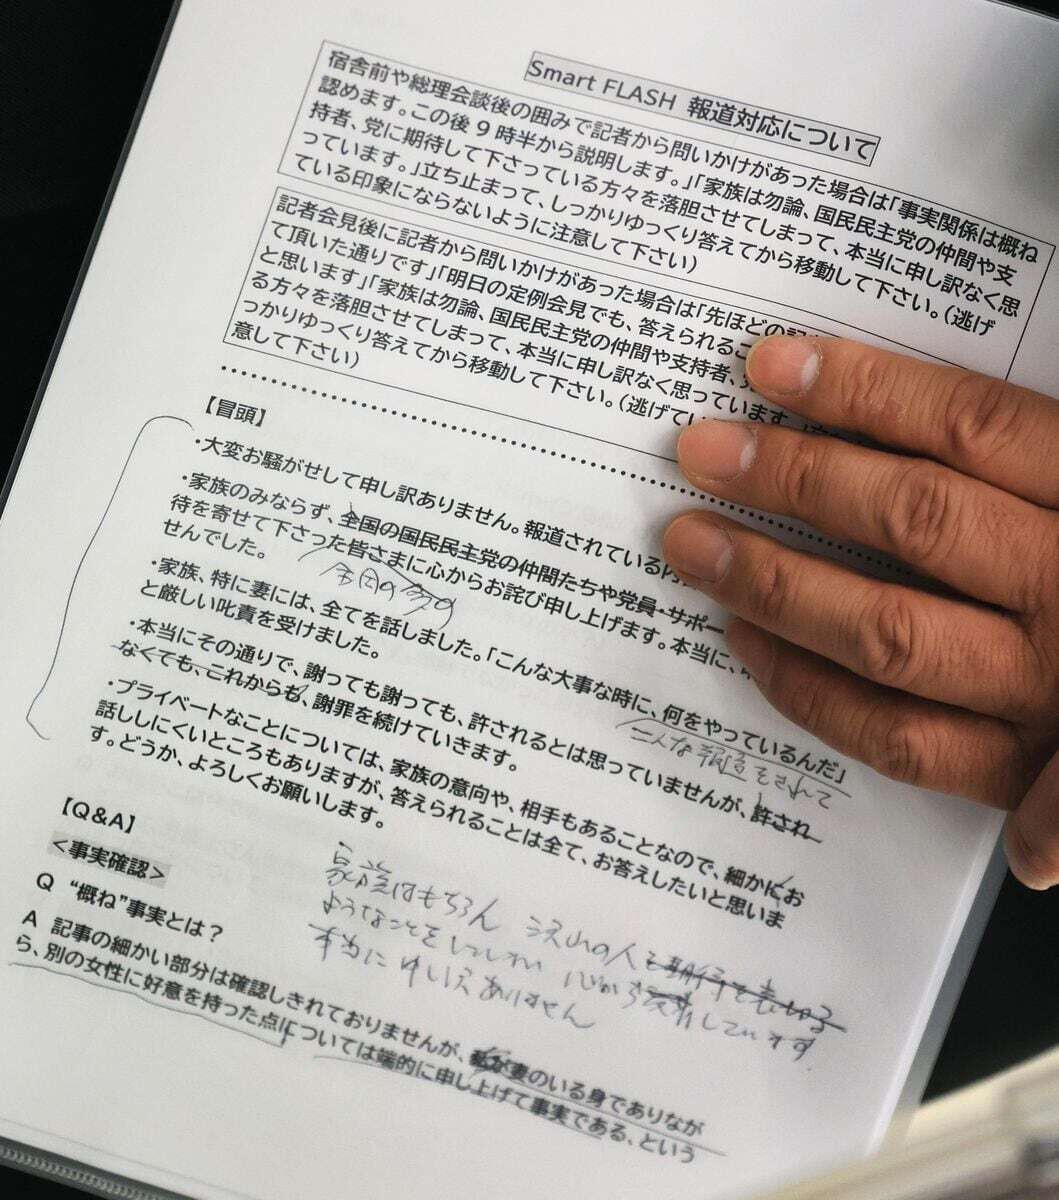 Smart FLASH 報道対応について
宿舎前や総理会談後の囲みで記者から問いかけがあった場合は「事実関係は概ね
認めます。この後9時半から説明します。」「家族は勿論、国民民主党の仲間や支
持者、党に期待して下さっている方々を落胆させてしまって、本当に申し訳なく思
っています。」立ち止まって、しっかりゆっくり答えてから移動して下さい。（逃げ
ている印象にならないように注意して下さい）
記者会見後に記者から問いかけがあった場合は「先ほどの記
て頂いた通りです」「明日の定例会見でも、答えられるこ
と思います」「家族は勿論、国民民主党の仲間や支持者、
る方々を落胆させてしまって、本当に申し訳なく思っています。
っかりゆっくり答えてから移動して下さい。（逃げてい
意して下さい）
【冒頭】
・大変お騒がせして申し訳ありません。報道されている内
・家族のみならず、全国の国民民主党の仲間たちや党員・サポー
待を寄せて下さった皆さまに心からお詫び申し上げます。本当に、
せんでした。
全国の
・家族、特に妻には、全てを話しました。「こんな大事な時に、何をやっているんだ」
と厳しい叱責を受けました。
こんな報道をされて
・本当にその通りで、謝っても謝っても、許されるとは思っていませんが、許され
なくても、これからも、謝罪を続けていきます。
・プライベートなことについては、家族の意向や、相手もあることなので、細かにお
話ししにくいところもありますが、答えられることは全て、お答えしたいと思いま
す。どうか、よろしくお願いします。
家族はもちろん 沢山の人
ようなことをして 心から していま��
本当に申し訳ありません
【Q&A】
＜事実確認＞
Q “概ね”事実とは？
A 記事の細かい部分は確認しきれておりませんが、妻のいる身でありなが
ら、別の女性に好意を持った点については端的に申し上げて事実である、という